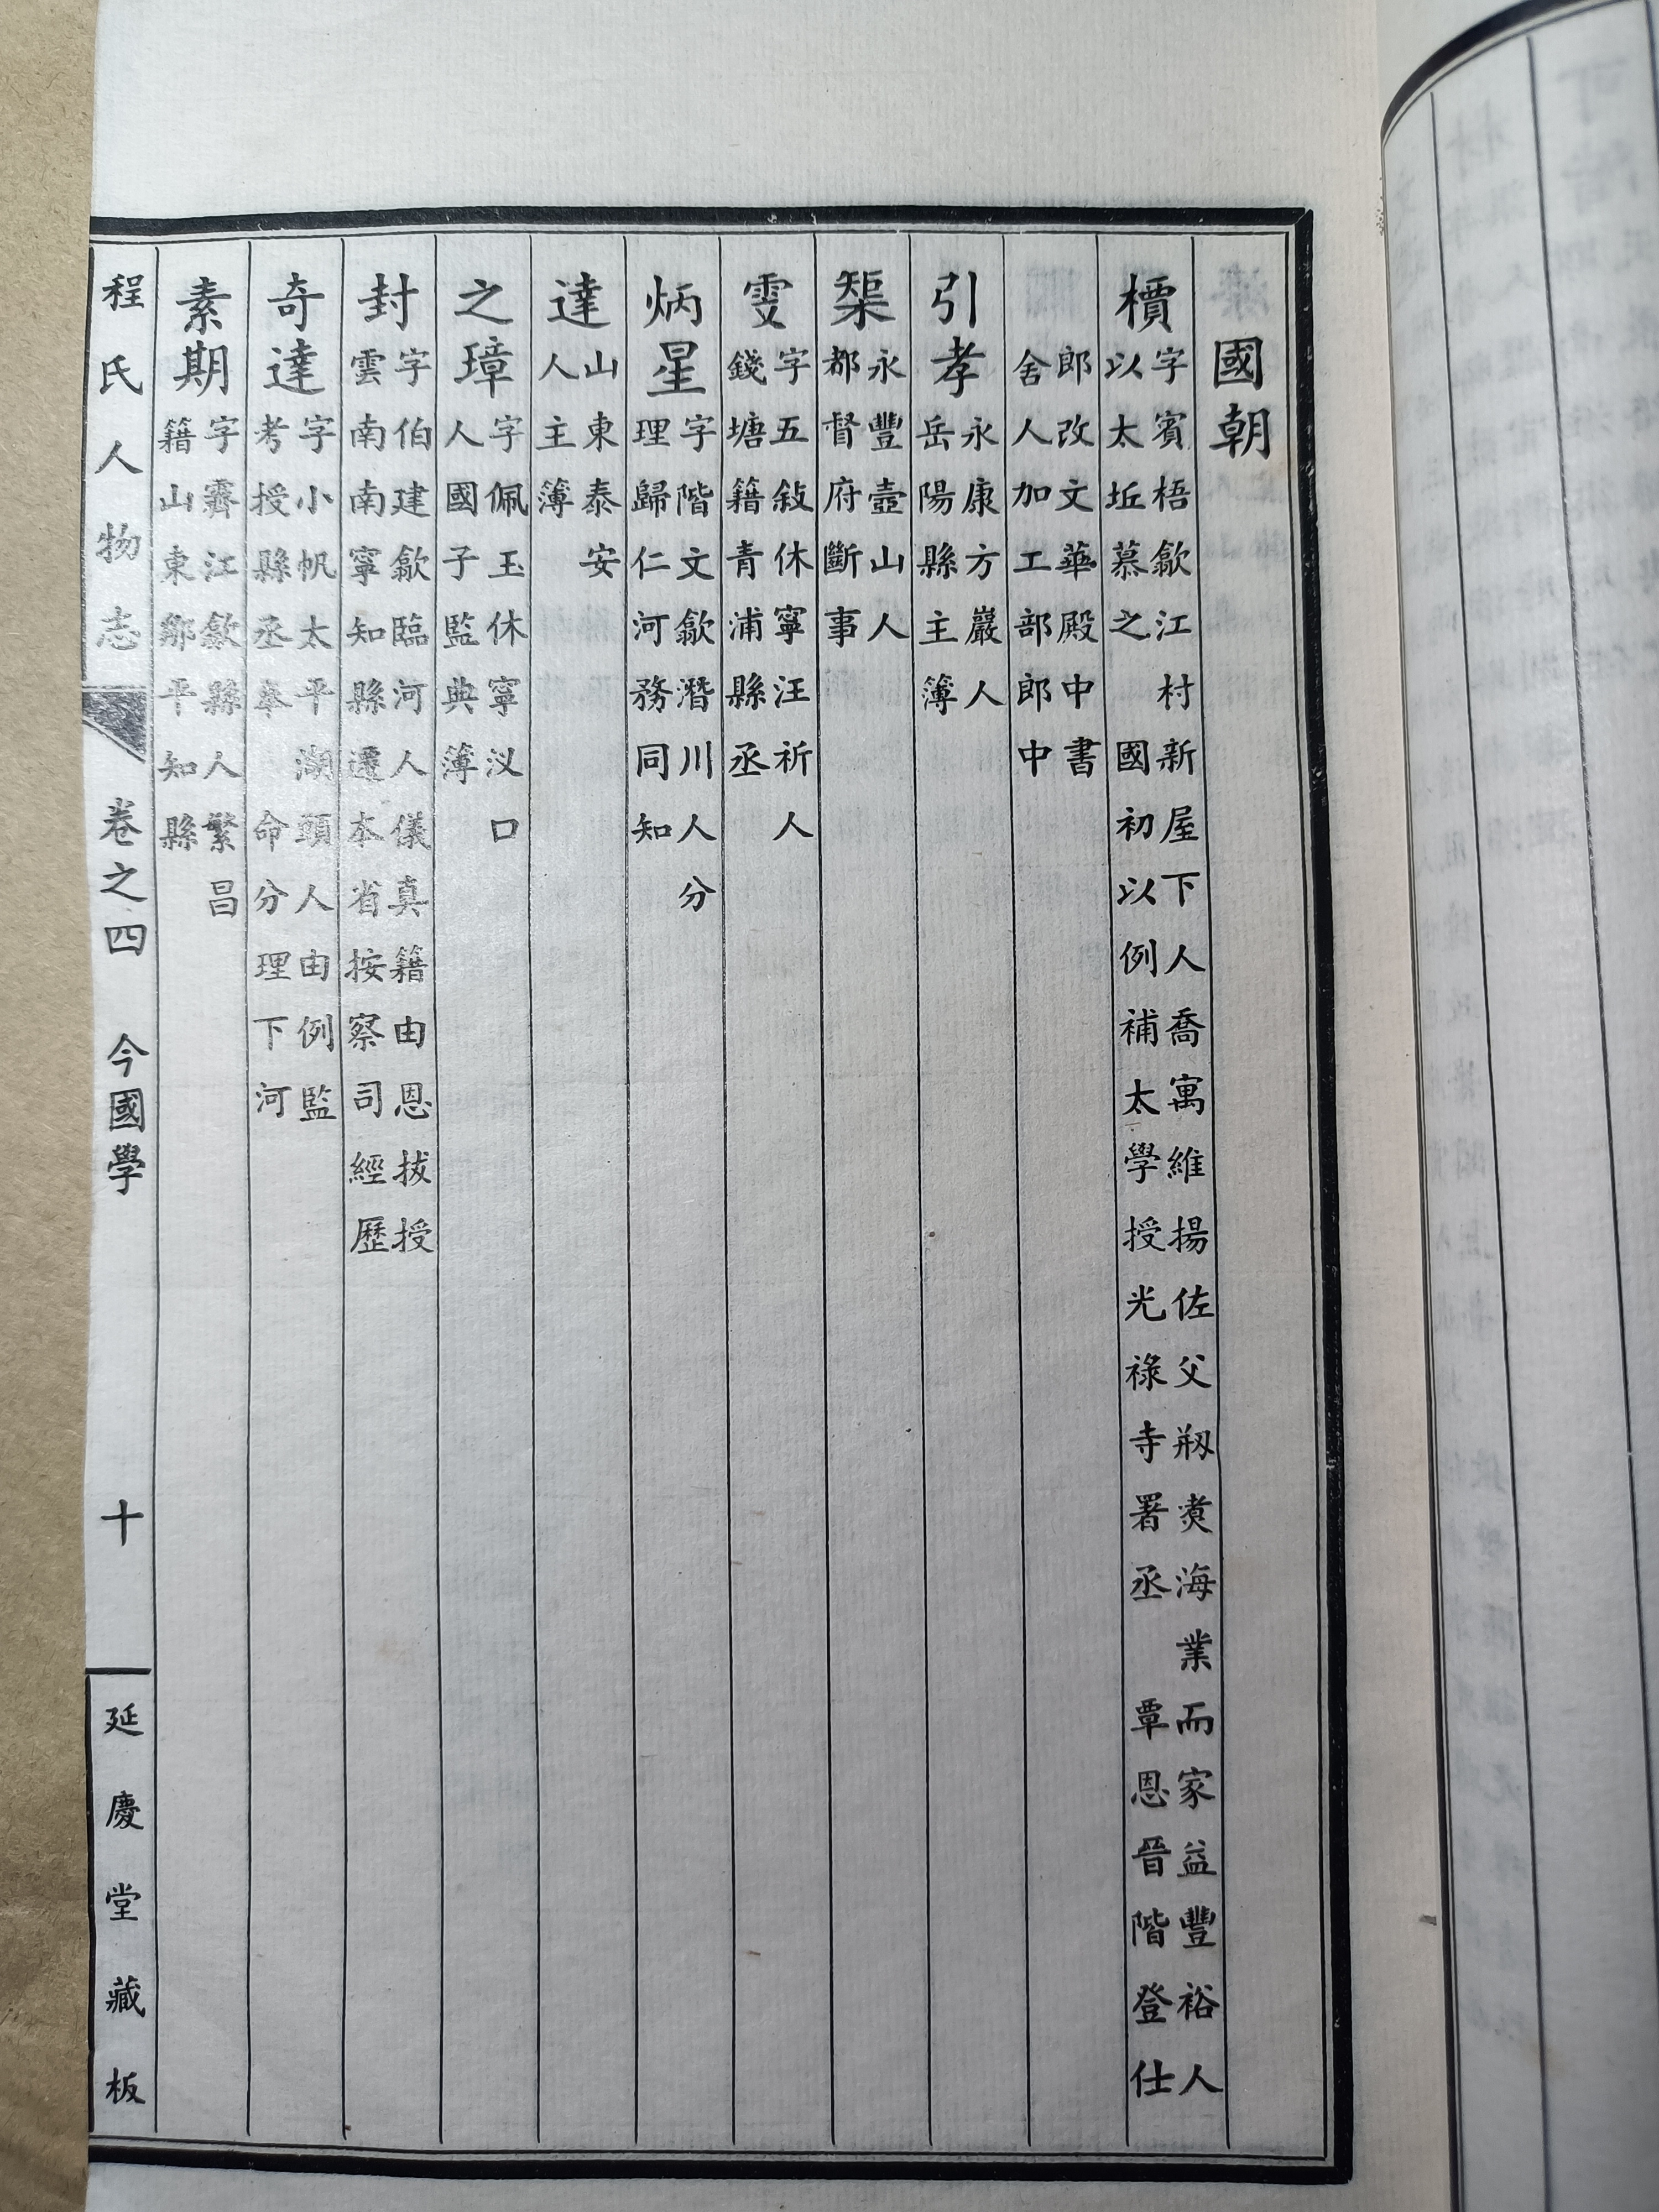 國朝
檟字賓梧歙江村新屋下人喬寓維揚佐父剏煑海業而家益豐裕人
以太坵慕之 國初以例補太學授光祿寺署丞 覃恩晉階登仕
郎改文華殿中書
舍人加工部郎中
引孝永康方巖人
岳陽縣主簿
榘永豐壼山人
都督府斷事
雯字五敍休寧汪祈人
錢塘籍青浦縣丞
炳星字階文歙潛川人分
理歸仁河務同知
達山東泰安
人主簿
之璋字佩玉休寧汊口
人國子監典簿
封字伯建歙臨河人儀真籍由恩拔授
雲南南寧知縣遷本省按察司經歷
奇達字小帆太平湖頭人由例監
考授縣丞奉 命分理下河
素期字霽江歙縣人繁昌
籍山東鄒平知縣
程氏人物志 卷之四 今國學 十 延慶堂藏板